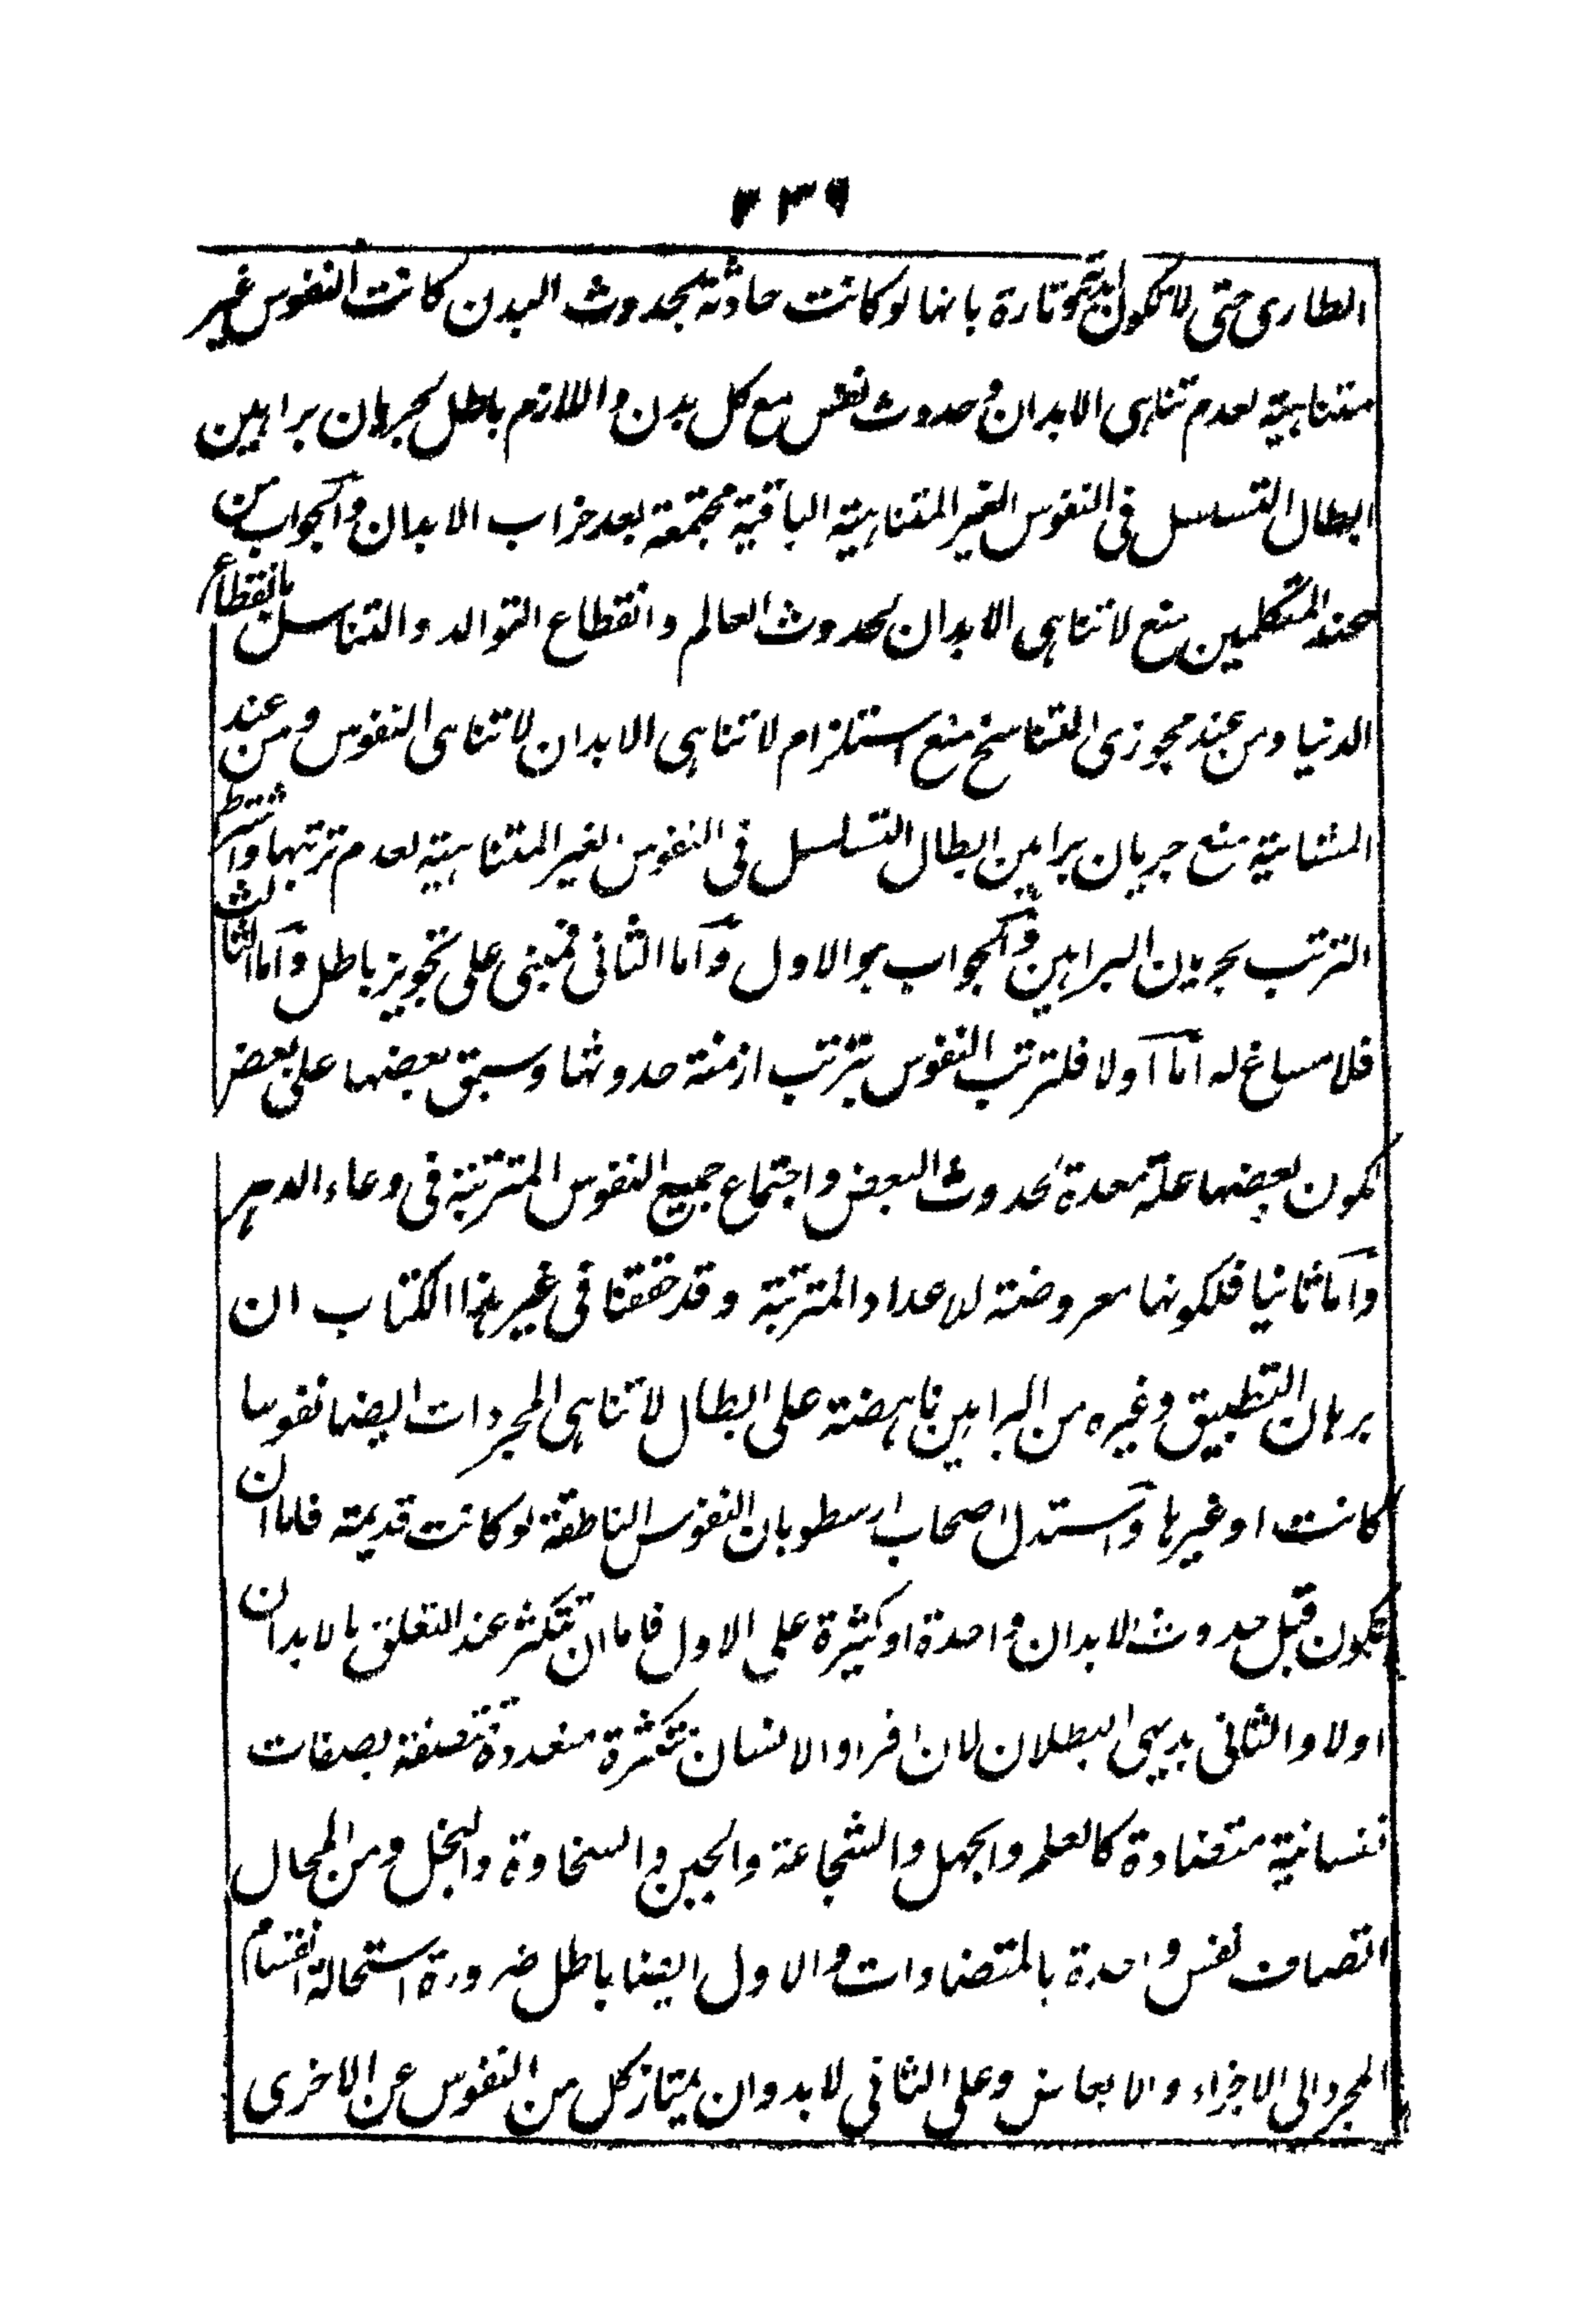 ٢٣٩
الطارى حتى لا تكون وتارة بانها لو كانت حادثة بحدوث البدن كانت النفوس غير
متناهية لعدم تناهى الابدان وحدوث نفس مع كل بدن واللازم باطل لجريان براهين
ابطال التسلسل فى النفوس الغير المتناهية الباقية مجتمعة بعد خراب الابدان والجواب من
عند المتكلمين منع لا تناهى الابدان لحدوث العالم وانقطاع التوالد والتناسل بانقطاع
الدنيا ومن عند مجوزى التناسخ منع استلزام لا تناهى الابدان لا تناهى النفوس ومن عند
المشائية منع جريان براهين ابطال التسلسل فى النفوس الغير المتناهية لعدم ترتبها واشتراط
الترتب بجريان البراهين والجواب هو الاول واما الثانى فمبنى على تجويز باطل واما الثالث
فلا مساغ له اما اولا فلترتب النفوس بترتب ازمنة حدوثها وسبق بعضها على بعض
لكون بعضها علة معدة لحدوث البعض واجتماع جميع النفوس المترتبة فى وعاء الدهر
واما ثانيا فلكونها معروضة للاعداد المترتبة وقد حققنا فى غير هذا الكتاب ان
برهان التطبيق وغيره من البراهين ناهضة على ابطال لا تناهى المجردات ايضا نفوسا
كانت او غيرها واستدل اصحاب ارسطو بان النفوس الناطقة لو كانت قديمة فاما ان
تكون قبل حدوث الابدان واحدة او كثيرة على الاول فاما ان تتكثر عند التعلق بالابدان
اولا والثانى بديهى البطلان لان افراد الانسان متكثرة متعددة متصفة بصفات
نفسانية متضادة كالعلم والجهل والشجاعة والجبن والسخاوة والبخل ومن المحال
اتصاف نفس واحدة بالمتضادات والاول ايضا باطل ضرورة استحالة انقسام
المجرد الى الاجزاء والابعاض وعلى الثانى لا بد وان يمتاز كل من النفوس عن الاخرى